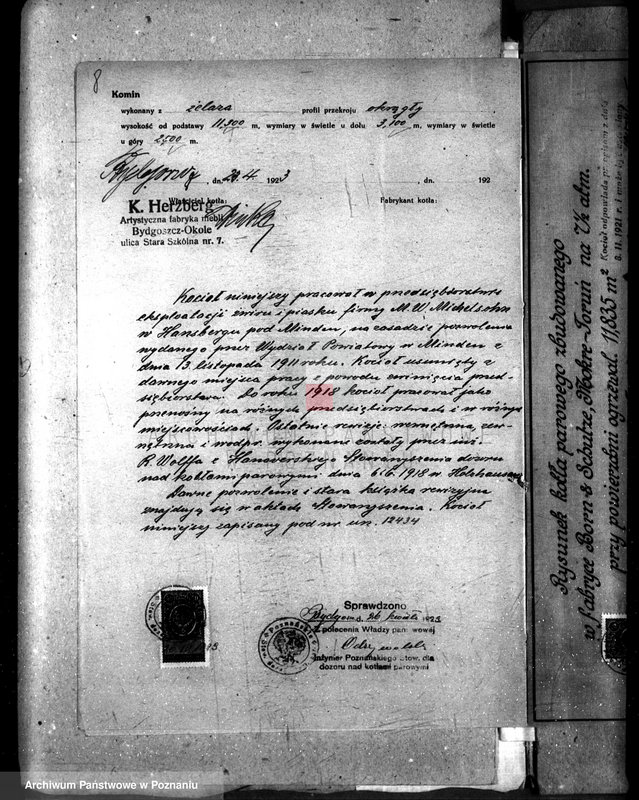 8
Komin
wykonany z żelaza profil przekroju okrągły
wysokość od podstawy 11,300 m, wymiary w świetle u dołu 3,100 m, wymiary w świetle
u góry 2500 m.
Bydgoszcz, dn. 20.4 1923 , dn. 192
Właściciel kotła: Fabrykant kotła:
K. Herzberg
Artystyczna fabryka mebli
Bydgoszcz-Okole
ulica Stara Szkólna nr. 7.
Kocioł niniejszy pracował w przedsiębiorstwie
eksploatacji żwiru i piasku firmy M.W. Michelsohn
w Hansbergu pod Minden, na zasadzie pozwolenia
wydanego przez Wydział Powiatowy w Minden z
dnia 13. listopada 1911 roku. Kocioł usunięty z
dawnego miejsca pracy z powodu zwinięcia przed-
siębiorstwa. Do roku 1918 kocioł pracował jako
przenośny na różnych przedsiębiorstwach i w różnych
miejscowościach. Ostatnie rewizje wewnętrzna, zew-
nętrzna i wodpr. wykonane zostały przez inż.
R. Wolffa z Hanowerskiego Stowarzyszenia dozoru
nad kotłami parowymi dnia 6.6. 1918 w Holzhausen
Dawne pozwolenie i stara książka rewizyjna
znajdują się w aktach Stowarzyszenia. Kocioł
niniejszy zapisany pod nr. un. 12434
Sprawdzono
Bydgoszcz d. 26 kwietn. 1923
Z polecenia Władzy państwowej
Inżynier Poznańskiego Stow. dla
dozoru nad kotłami parowymi
Rysunek kotła parowego zbudowanego
w fabryce Born & Schutze, Mokre-Toruń na 7½ atm.
przy powierzchni ogrzewal. 11,835 m²
Kocioł odpowiada przepisom z dnia
8. 11. 1921 r. i może być
Archiwum Państwowe w Poznaniu